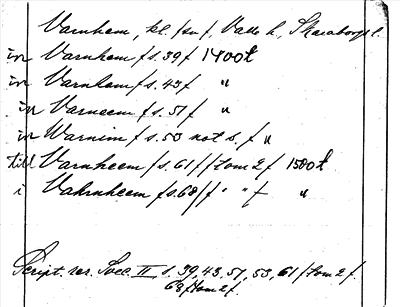 Varnhem, kl. /sn/, Valle h., Skaraborgs l.
in Varnhem /s. 39/ 1400t
in Varnhem /s. 43/ "
in Varneem /s. 51/ "
in Warnim /s. 53 not s./ "
till Varnheem /s. 61//tom 2/ 1500t
i Vahrnheem /s. 68// " " / "
Script. rer. Svec. II s. 39, 43, 51, 53, 61/tom 2/.
68/tom 2/.